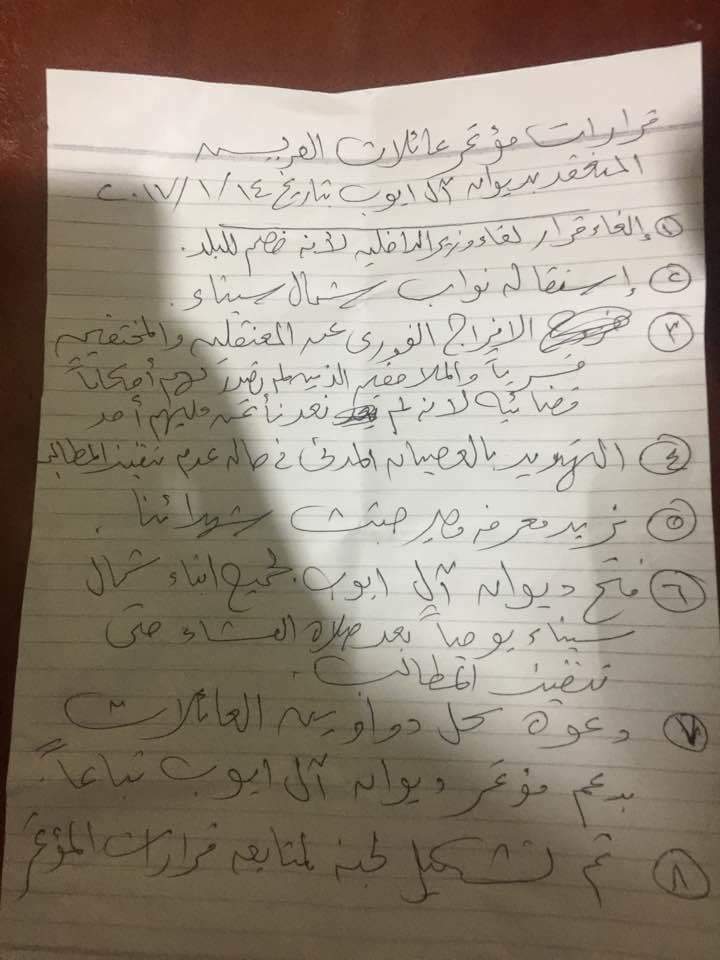 قرارات مؤتمر عائلات العريش
المنعقد بديوان آل ايوب بتاريخ ١٤/١/٢٠١٧
١ إلغاء قرار لقاء وزير الداخليه لأنه خصم للبلد.
٢ إستقاله نواب شمال سيناء.
٣ الافراج الفورى عن المعتقلين والمختفين
قسرياً والملاحقين الذين لم تصدر لهم أحكاماً
قضائيه لانه لم يعد نأتمن عليهم أحد
٤ التهديد بالعصيان المدنى فى حاله عدم تنفيذ المطالب
٥ نريد معرفه مصير جثث شهدائنا.
٦ فتح ديوان آل ايوب لجميع ابناء شمال
سيناء يومياً بعد صلاة العشاء حتى
تنفيذ المطالب.
٧ دعوة كل دواوين العائلات
بدعم مؤتمر ديوان آل ايوب تباعاً.
٨ تم تشكيل لجنه لمتابعه قرارات المؤتمر